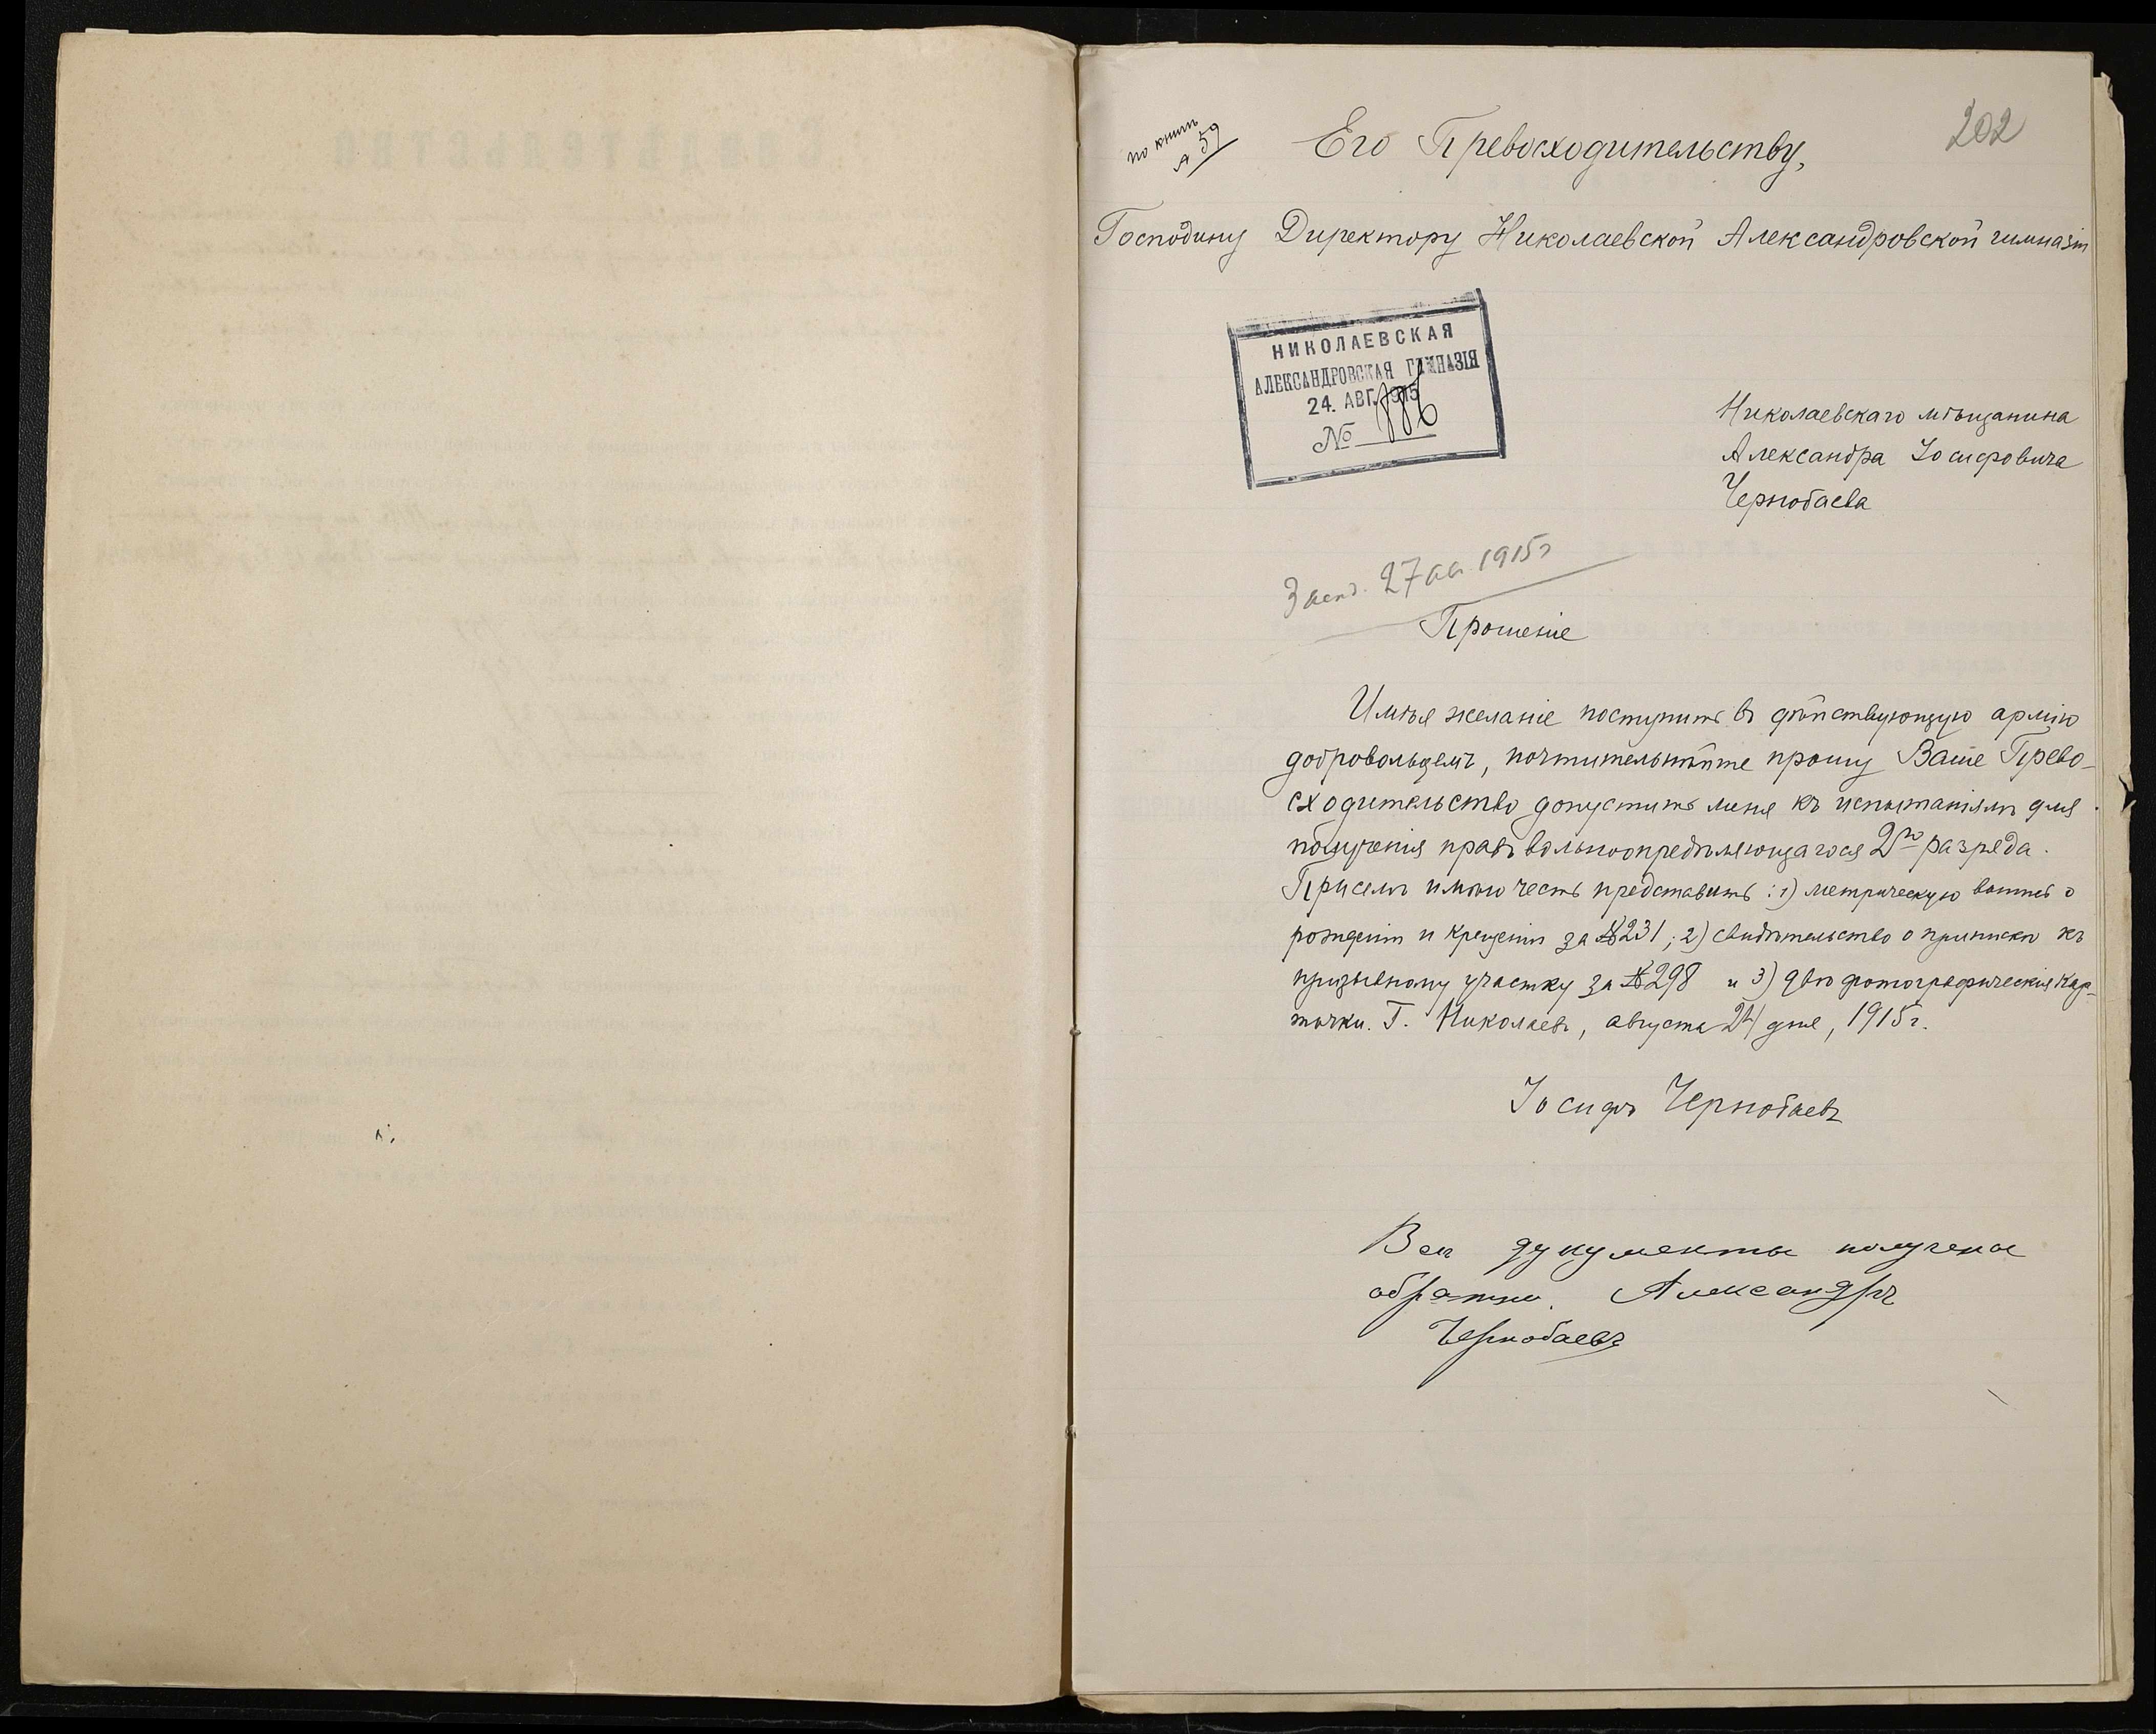 по книгѣ
№ 59
202
Его Превосходительству,
Господину Директору Николаевской Александровской гимназіи
НИКОЛАЕВСКАЯ
АЛЕКСАНДРОВСКАЯ ГИМНАЗІЯ
24. АВГ. 1915
№ 886
Николаевскаго мѣщанина
Александра Іосифовича
Чернобаева
27 ав. 1915 г
Прошеніе
Имѣя желаніе поступить въ дѣйствующую армію
добровольцемъ, почтительнѣйше прошу Ваше Прево-
сходительство допустить меня къ испытаніямъ для
полученія правъ вольноопредѣляющагося 2го разряда.
При семъ имѣю честь представить: 1) метрическую выпись о
рожденіи и крещеніи за № 231; 2) свидѣтельство о припискѣ къ
призывному участку за № 298 и 3) двѣ фотографическія кар-
точки. Г. Николаевъ, августа 24 дня, 1915 г.
Іосифъ Чернобаевъ
Всѣ документы получены
обратно. Александръ
Чернобаевъ